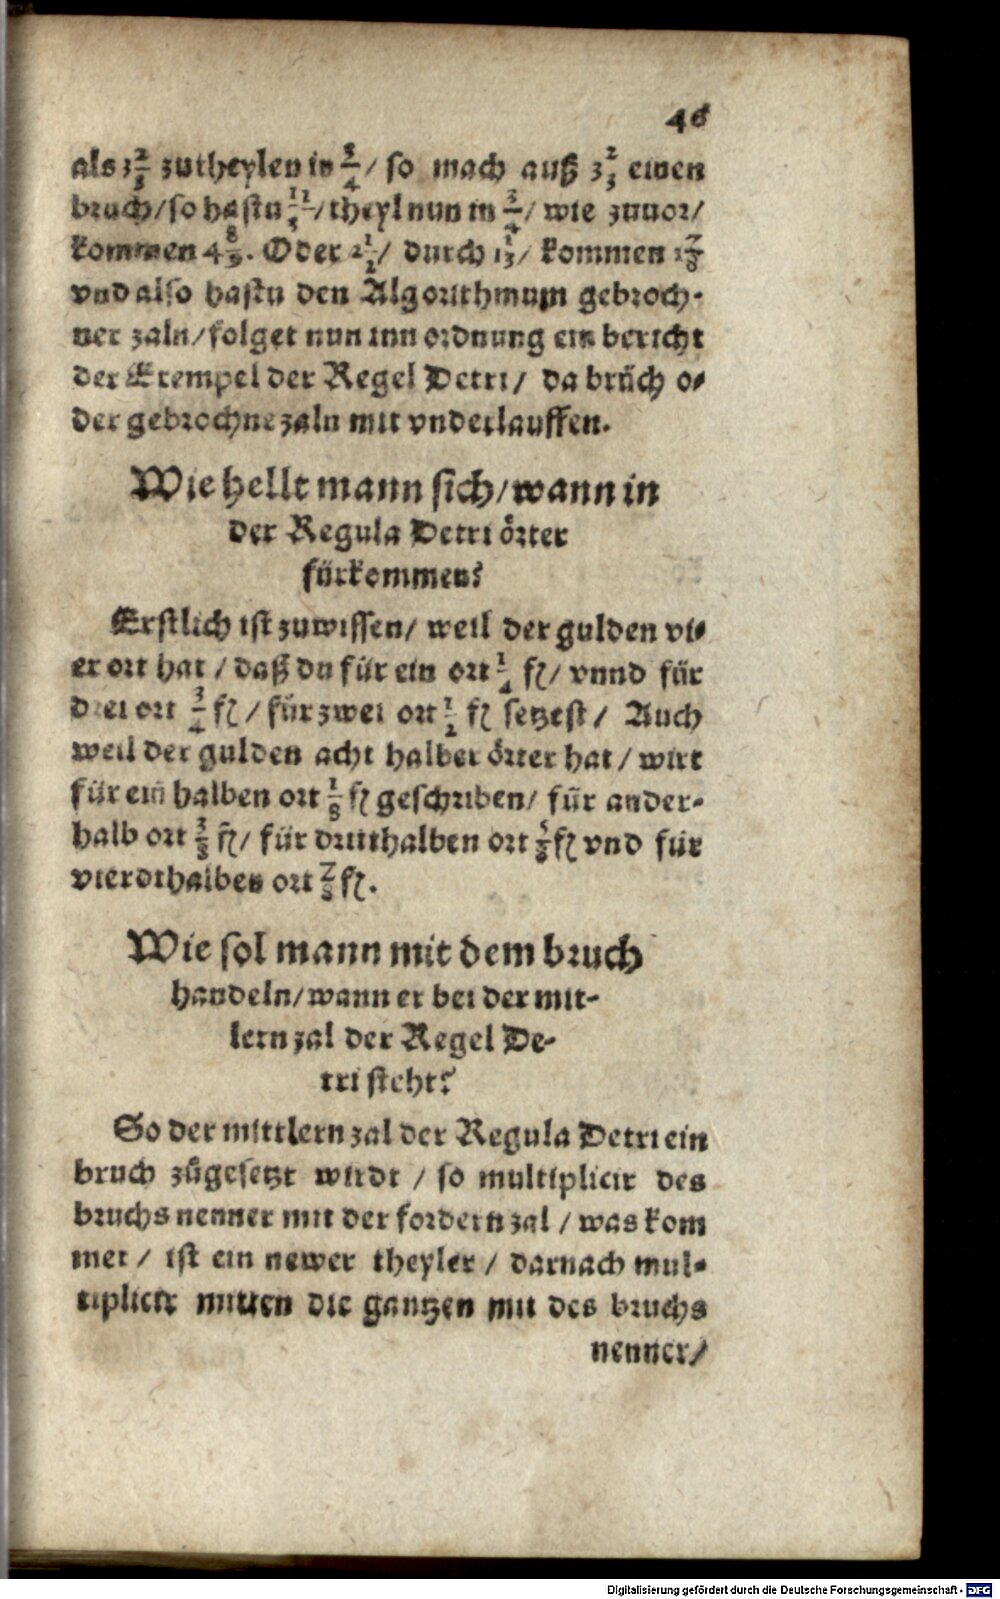 46
als 3 2/3 zutheylen in 3/4/ so mach auß 3 2/3 einen
bruch/ so hastu 11/3/ theyl nun in 3/4/ wie zuuor/
kommen 4 8/9. Oder 2 1/2/ durch 1 1/3/ kommen 1 7/8
vnd also hastu den Algorithmum gebroch-
ner zaln/ folget nun inn ordnung ein bericht
der Exempel der Regel Detri/ da brüch o-
der gebrochne zaln mit vnderlauffen.
Wie hellt mann sich/ wann in
der Regula Detri örter
fürkommen?
Erstlich ist zuwissen/ weil der gulden vi-
er ort hat/ daß du für ein ort 1/4 fl/ vnnd für
drei ort 3/4 fl/ für zwei ort 1/2 fl setzest/ Auch
weil der gulden acht halber örter hat/ wirt
für ein halben ort 1/8 fl geschriben/ für ander-
halb ort 3/8 fl/ für dritthalben ort 5/8 fl vnd für
vierdthalben ort 7/8 fl.
Wie sol mann mit dem bruch
handeln/ wann er bei der mit-
lern zal der Regel De-
tri steht?
So der mittlern zal der Regula Detri ein
bruch zůgesetzt wirdt/ so multiplicir des
bruchs nenner mit der fordern zal/ was kom
met/ ist ein newer theyler/ darnach mul-
tiplicir mitten die gantzen mit des bruchs
nenner/
Digitalisierung gefördert durch die Deutsche Forschungsgemeinschaft - DFG